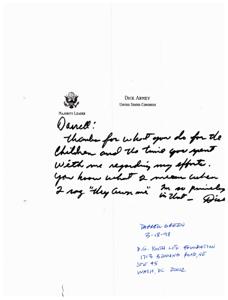 DICK ARMEY
UNITED STATES CONGRESS
MAJORITY LEADER
Darrell:
Thanks for what you do for the
Children and the time you spent
with me regarding my efforts.
You know what I mean when
I say "they
in that — Dick
DARRELL GREEN
3-18-98
D.G. YOUTH LIFE FOUNDATION
STE
WASH, DC 20002